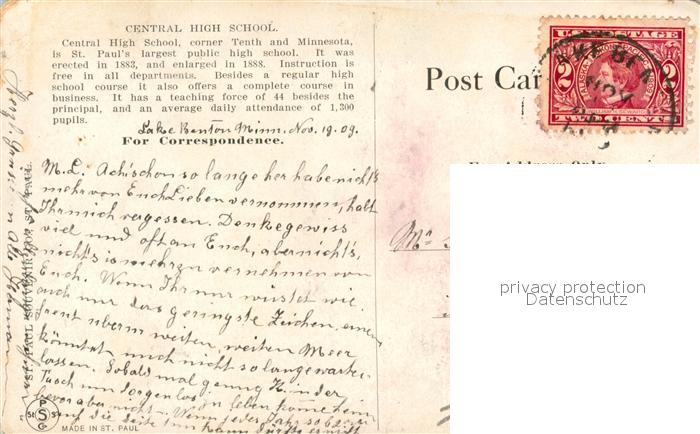 CENTRAL HIGH SCHOOL.
Central High School, corner Tenth and Minnesota,
is St. Paul's largest public high school. It was
erected in 1883, and enlarged in 1888. Instruction is
free in all departments. Besides a regular high
school course it also offers a complete course in
business. It has a teaching force of 44 besides the
principal, and an average daily attendance of 1,300
pupils.
Lake Benton Minn. Nov. 19. 09.
For Correspondence.
M. L. Ach schon so lange her habe nichts
mehr von Euch Lieben vernommen, habt
Ihr mich vergessen. Denke gewiss
viel und oft an Euch, aber nicht's,
nicht's is mehr zu vernehmen von
Euch. Wenn Ihr nur wüstet wie
auch nur das geringste Zeichen, einen
freut überm weiten, weiten Meer
könntet mich nicht so lange warten
lassen. Sobald mal genug K in der
Tasch um sorgenlos zu leben kome heim
bevor aber nicht. Wenn jedes Jahr so
auf die Seite tun kann
ST. PAUL SOUVENIR CO., ST. PAUL.
PSG
St S
MADE IN ST. PAUL
Post Car
U.S. POSTAGE
2 2
TWO CENTS
KE BEN
NOV
Mr
privacy protection
Datenschutz